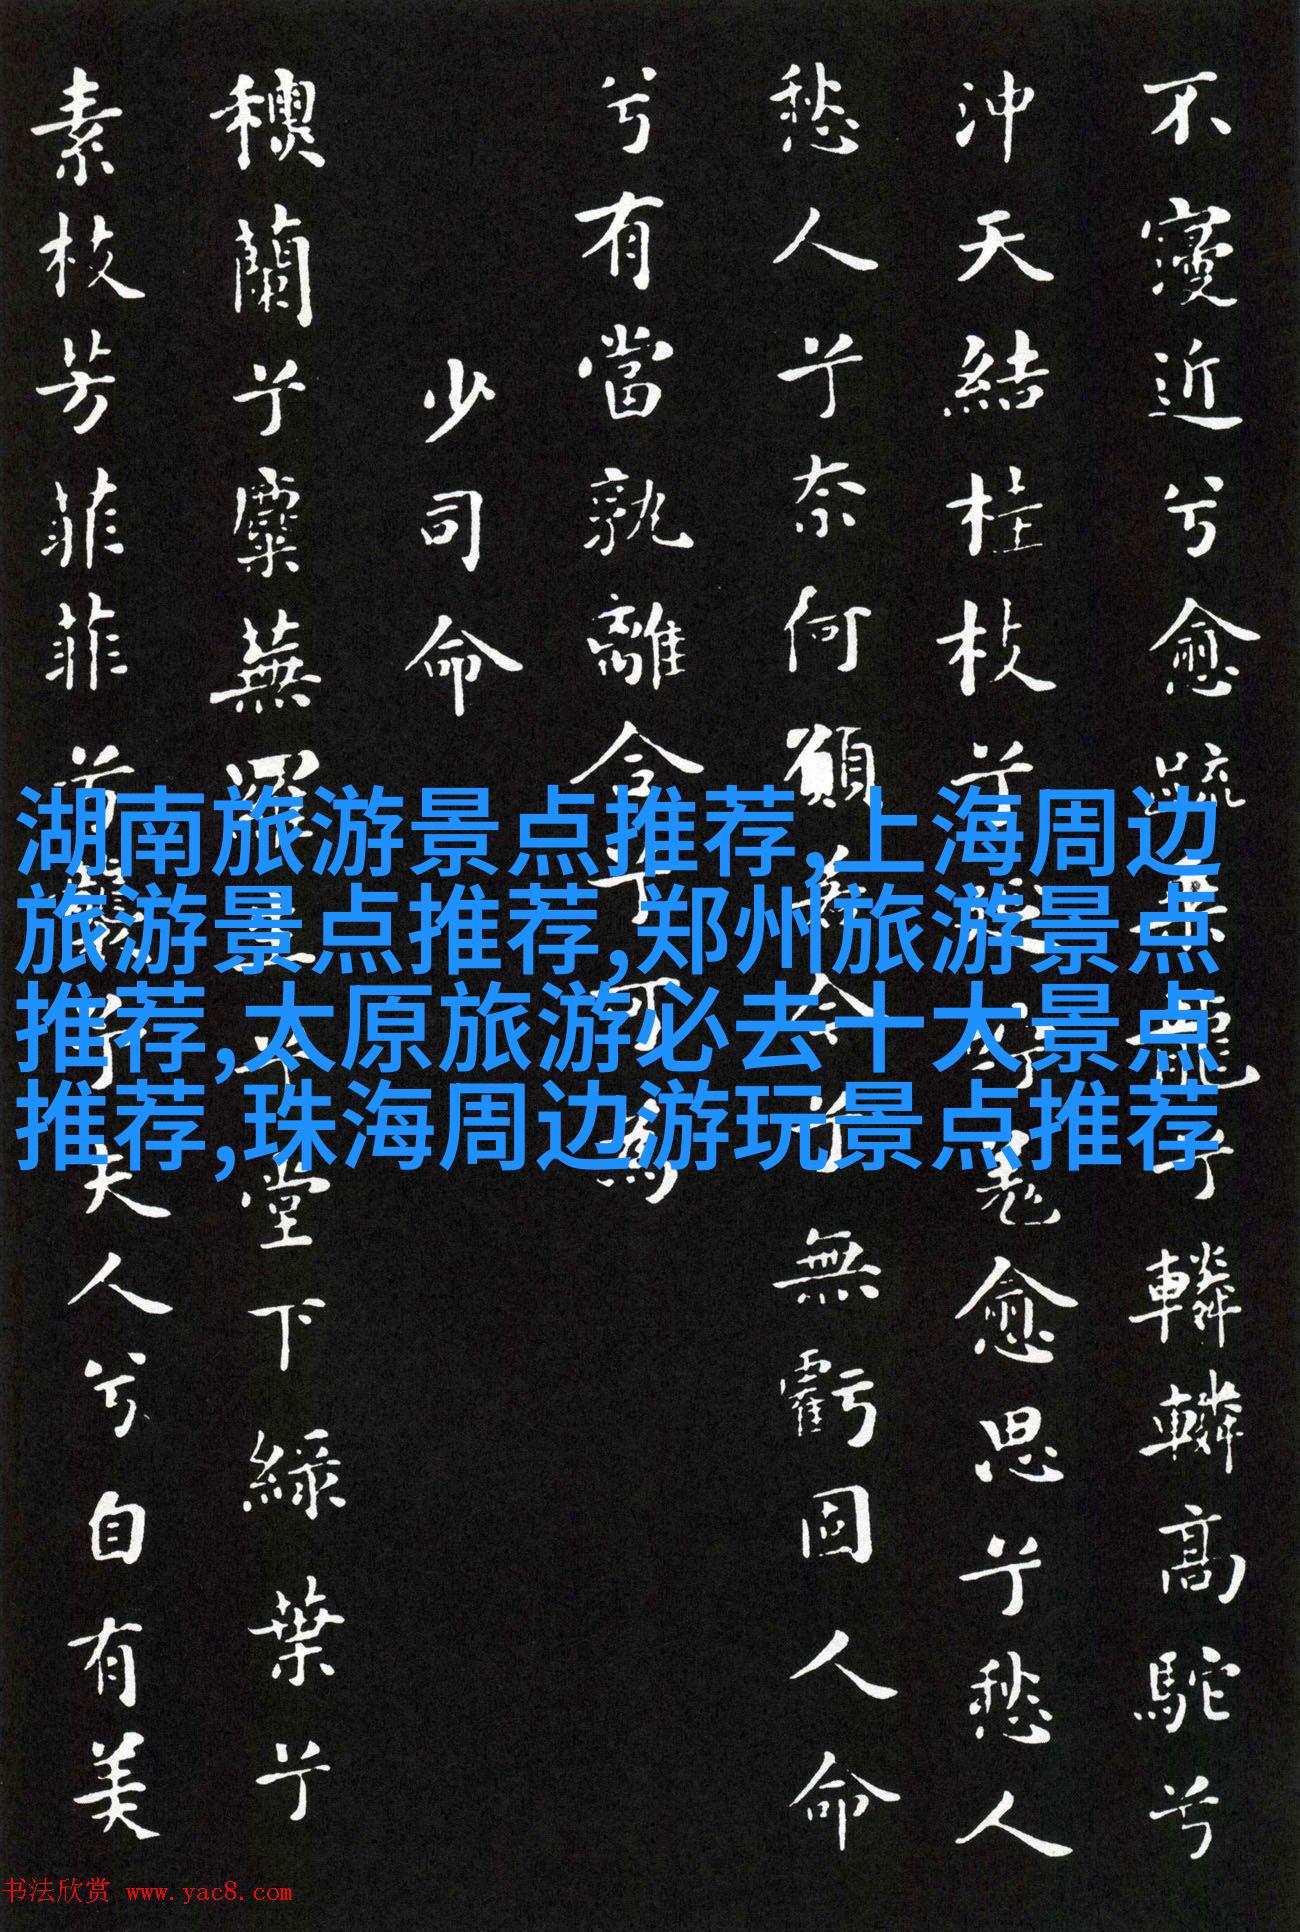 不寖近兮愈疏乘龍兮轔轔高駝兮
沖天結桂枝兮延佇羌愈思兮愁人
愁人兮奈何願若今兮無虧固人命
兮有當孰離合兮可為
少司命
蘭兮麋蕪羅生兮堂下綠葉兮
素枝芳菲菲兮襲予夫人兮自有美
湖南旅游景点推荐,上海周边
旅游景点推荐,郑州旅游景点
推荐,太原旅游必去十大景点
推荐,珠海周边游玩景点推荐
书法欣赏 www.yac8.com